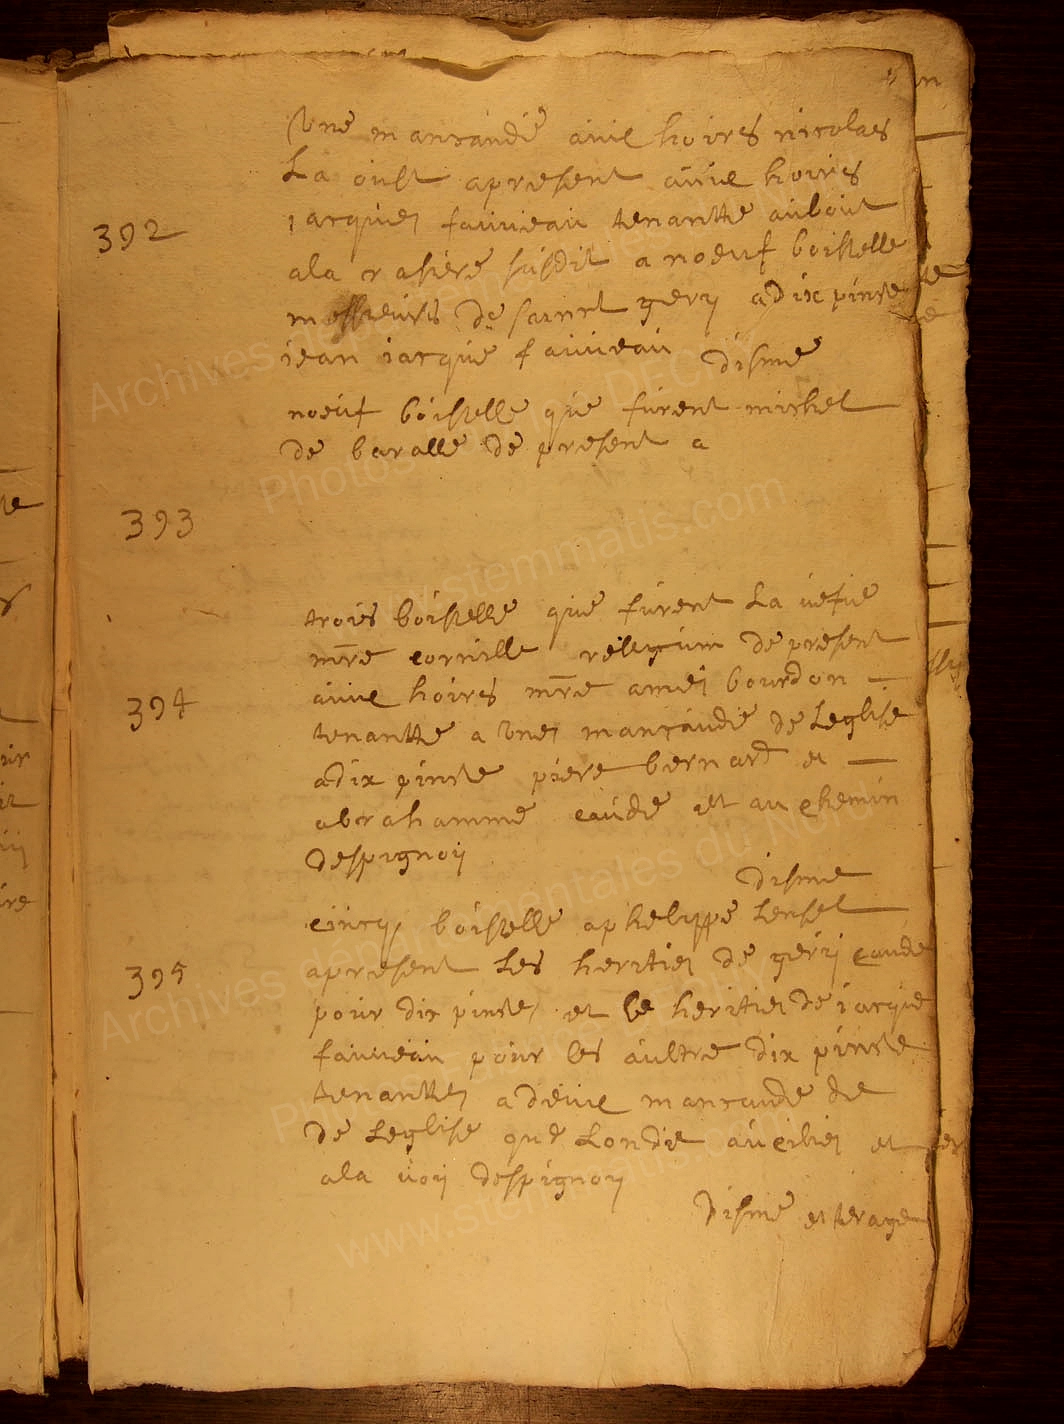 une mancaudie auve hoires nicolas
La oust apresent auve hoires
392
iarques fauveau tenantte aubout
ala rasiere susdit a noeuf boistelle
messieurs de sainct gery a dix pinte
iean iarque fauveau disme
noeuf boistelle que furent michel
de baralle de present a
393
trois boistelle que furent La vefve
mre cornille de present
auve hoires mre bourdon
394
tenantte a une mancaudie de Leglise
a dix pinte piere bernard et
abrahamme caudie et au chemin
despignoy
disme
cincq boistelle a phelippe Lensel
395
apresent Les heritie de gery caude
pour dix pinte et le heritie de iarque
fauveau pour les aultre dix pinte
tenantte a deuve mancaude de
de Leglise que Londie et
ala voy despignoy
disme et terage
Archives départementales du Nord
www.stemmatis.com